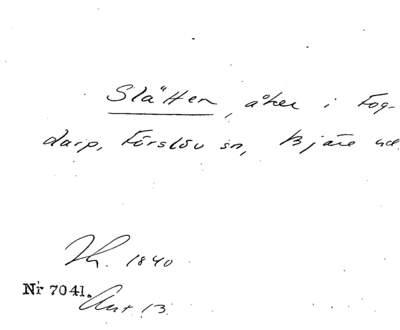 Slätten, åker i Fog-
darp, Förslöv sn, Bjäre hd.
Lh. 1840
Nr 7041. Ant. 13.